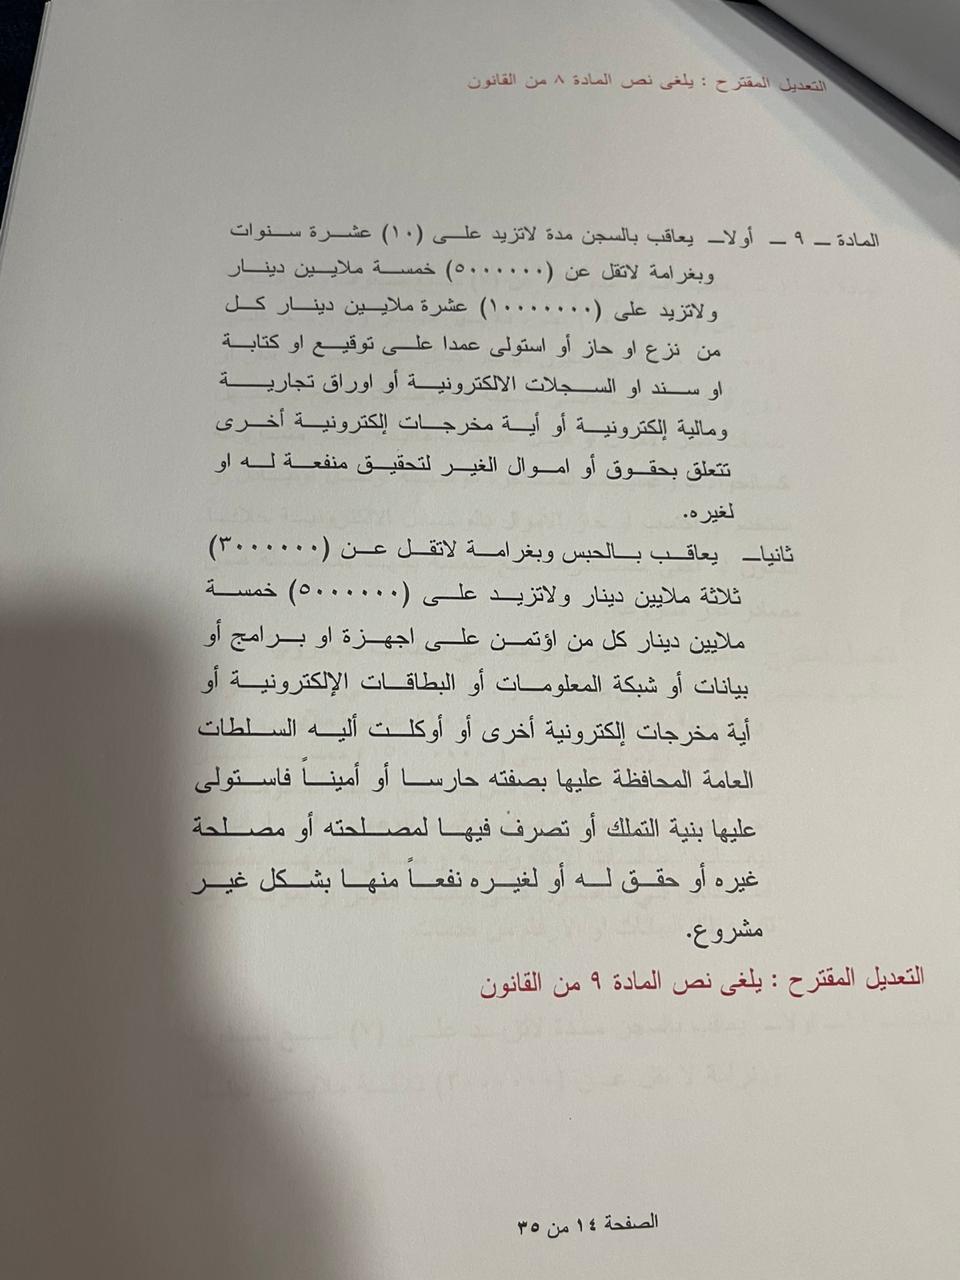 التعديل المقترح : يلغى نص المادة ٨ من القانون
المادة ـ ٩ ـ أولاـ يعاقب بالسجن مدة لاتزيد على (١٠) عشرة سنوات
وبغرامة لاتقل عن (٥٠٠٠٠٠٠) خمسة ملايين دينار
ولاتزيد على (١٠٠٠٠٠٠٠) عشرة ملايين دينار كل
من نزع او حاز أو استولى عمدا على توقيع او كتابة
او سند او السجلات الالكترونية أو اوراق تجارية
ومالية إلكترونية أو أية مخرجات إلكترونية أخرى
تتعلق بحقوق أو اموال الغير لتحقيق منفعة له او
لغيره.
ثانياـ يعاقب بالحبس وبغرامة لاتقل عن (٣٠٠٠٠٠٠)
ثلاثة ملايين دينار ولاتزيد على (٥٠٠٠٠٠٠) خمسة
ملايين دينار كل من اؤتمن على اجهزة او برامج أو
بيانات أو شبكة المعلومات أو البطاقات الإلكترونية أو
أية مخرجات إلكترونية أخرى أو أوكلت أليه السلطات
العامة المحافظة عليها بصفته حارسا أو أميناً فاستولى
عليها بنية التملك أو تصرف فيها لمصلحته أو مصلحة
غيره أو حقق له أو لغيره نفعاً منها بشكل غير
مشروع.
التعديل المقترح : يلغى نص المادة ٩ من القانون
الصفحة ١٤ من ٣٥